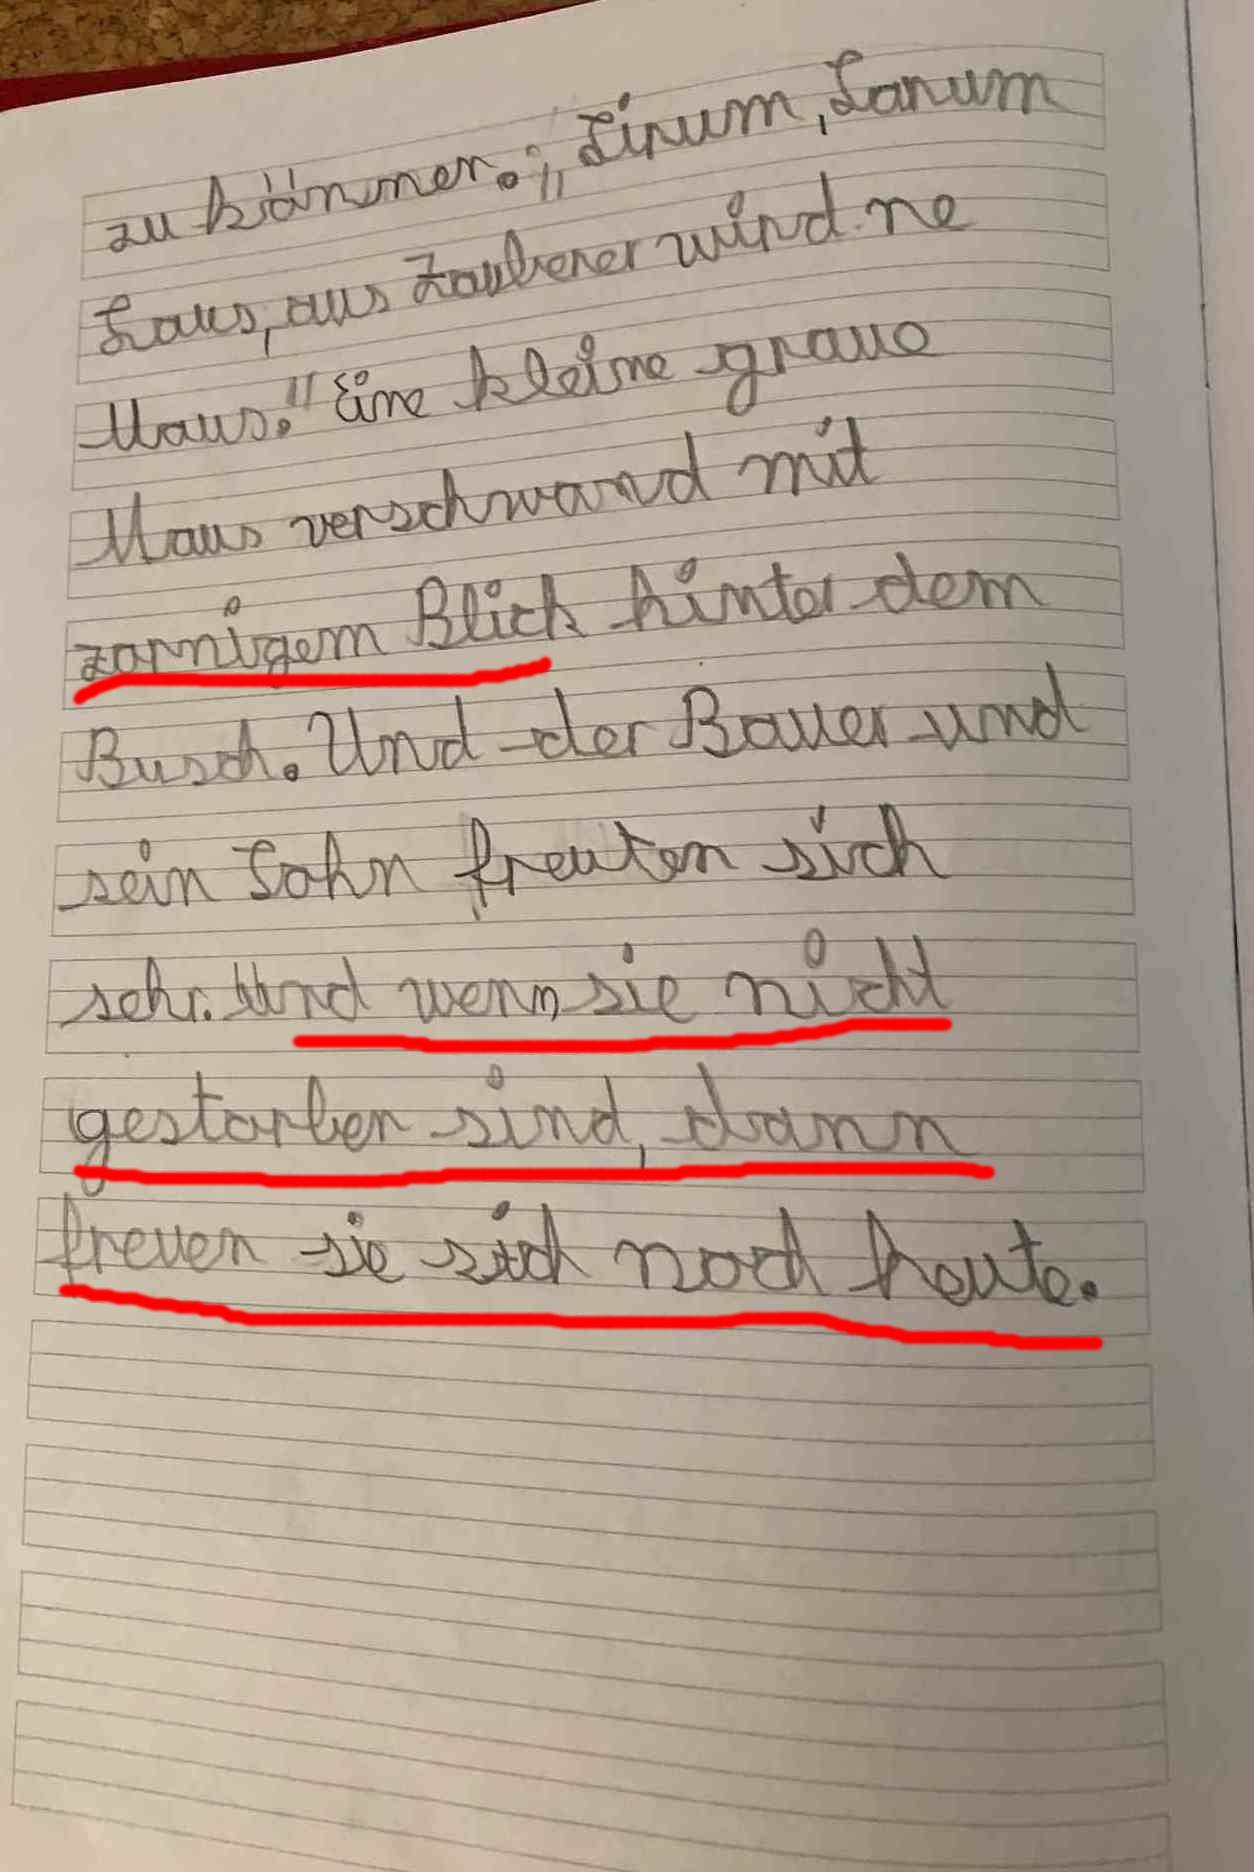 zu können. „Linum, Lanum
Laus, aus Zauberer wird ne
Maus." Eine kleine graue
Maus verschwand mit
zornigem Blick hinter dem
Busch. Und der Bauer und
sein Sohn freuten sich
sehr. Und wenn sie nicht
gestorben sind, dann
freuen sie sich noch heute.